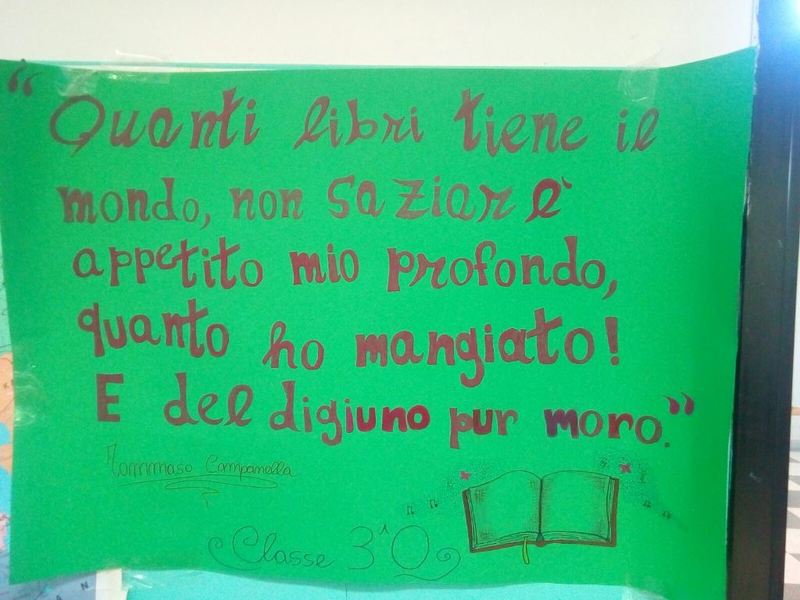 “Quanti libri tiene il
mondo, non saziar l'
appetito mio profondo,
quanto ho mangiato!
E del digiuno pur moro.”
Tommmaso Campanella
Classe 3ªO